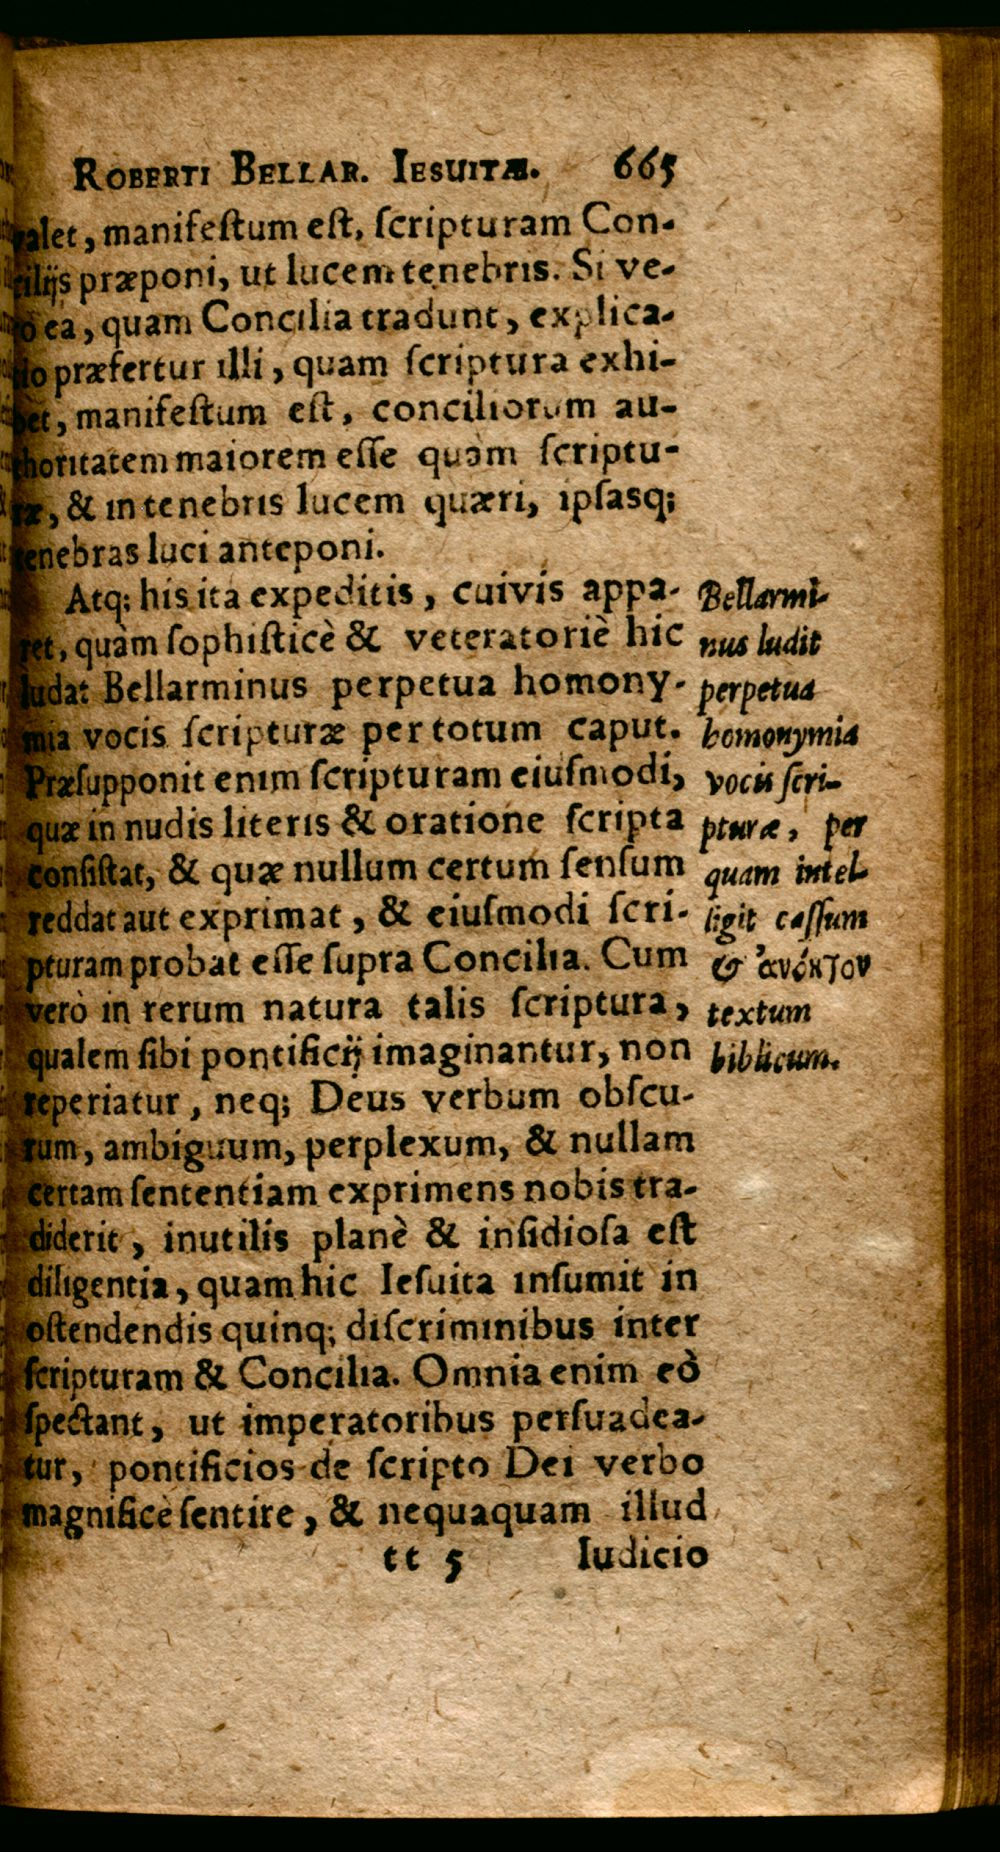 ROBERTI BELLAR. IESUITÆ. 665
valet, manifeſtum eſt, ſcripturam Con-
ciliĳs præponi, ut lucem tenebris. Si ve-
rò ea, quam Concilia tradunt, explica-
tio præfertur illi, quam ſcriptura exhi-
bet, manifeſtum eſt, conciliorum au-
thoritatem maiorem eſſe quàm ſcriptu-
ræ, & in tenebris lucem quæri, ipſasq;
tenebras luci anteponi.
Atq; his ita expeditis, cuivis appa-
ret, quàm ſophiſticè & veteratoriè hic
ludat Bellarminus perpetua homony-
mia vocis ſcripturæ per totum caput.
Præſupponit enim ſcripturam eiuſmodi,
quæ in nudis literis & oratione ſcripta
conſiſtat, & quæ nullum certum ſenſum
reddat aut exprimat, & eiuſmodi ſcri-
pturam probat eſſe ſupra Concilia. Cum
verò in rerum natura talis ſcriptura,
qualem ſibi pontificĳ imaginantur, non
reperiatur, neq; Deus verbum obſcu-
rum, ambiguum, perplexum, & nullam
certam ſententiam exprimens nobis tra-
diderit, inutilis planè & inſidioſa eſt
diligentia, quam hic Ieſuita inſumit in
oſtendendis quinq; diſcriminibus inter
ſcripturam & Concilia. Omnia enim eò
ſpectant, ut imperatoribus perſuadea-
tur, pontificios de ſcripto Dei verbo
magnificè ſentire, & nequaquam illud
tt 5 Iudicio
Bellarmi-
nus ludit
perpetua
homonymia
vocis ſcri-
pturæ, per
quam intel-
ligit caſſum
& ἀνόητον
textum
biblicum.